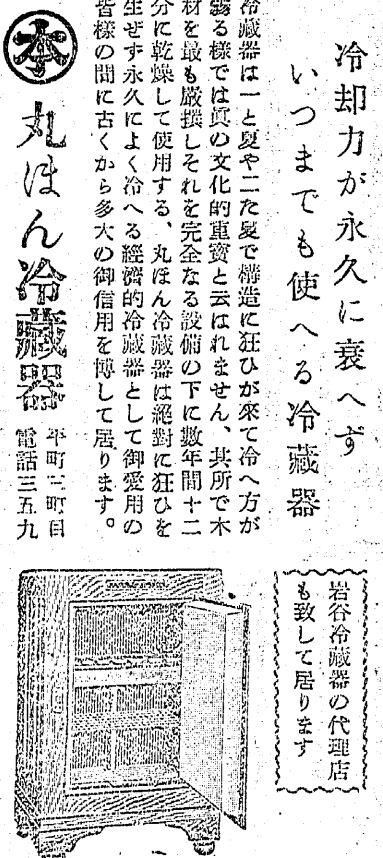 冷却力が永久に衰へず
いつまでも使へる冷藏器
冷藏器は一と夏や二た夏で構造に狂ひが來て冷へ方が
弱る樣では眞の文化的重寳と云はれません、其所で木
材を最も嚴撰しそれを完全なる設備の下に數年間十二
分に乾燥して使用する、丸ほん冷藏器は絕對に狂ひを
生ぜず永久によく冷へる經濟的冷藏器として御愛用の
皆樣の間に古くから多大の御信用を博して居ります。
本
丸ほん冷藏器
平町三町目
電話三五九
岩谷冷藏器の代理店
も致して居ります